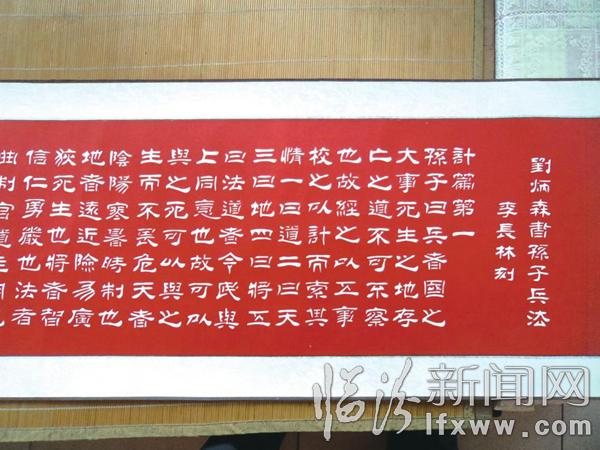 劉炳森書孫子兵法
李長林刻
計篇第一
孫子曰兵者國之
大事死生之地存
亡之道不可不察
也故經之以五事
校之以計而索其
情一曰道二曰天
三曰地四曰將五
曰法道者令民與
上同意也故可以
與之死可以與之
生而不畏危天者
陰陽寒暑時制也
地者遠近險易廣
狹死生也將者智
信仁勇嚴也法者
曲制官道主用
临汾新闻网
lfxww.com